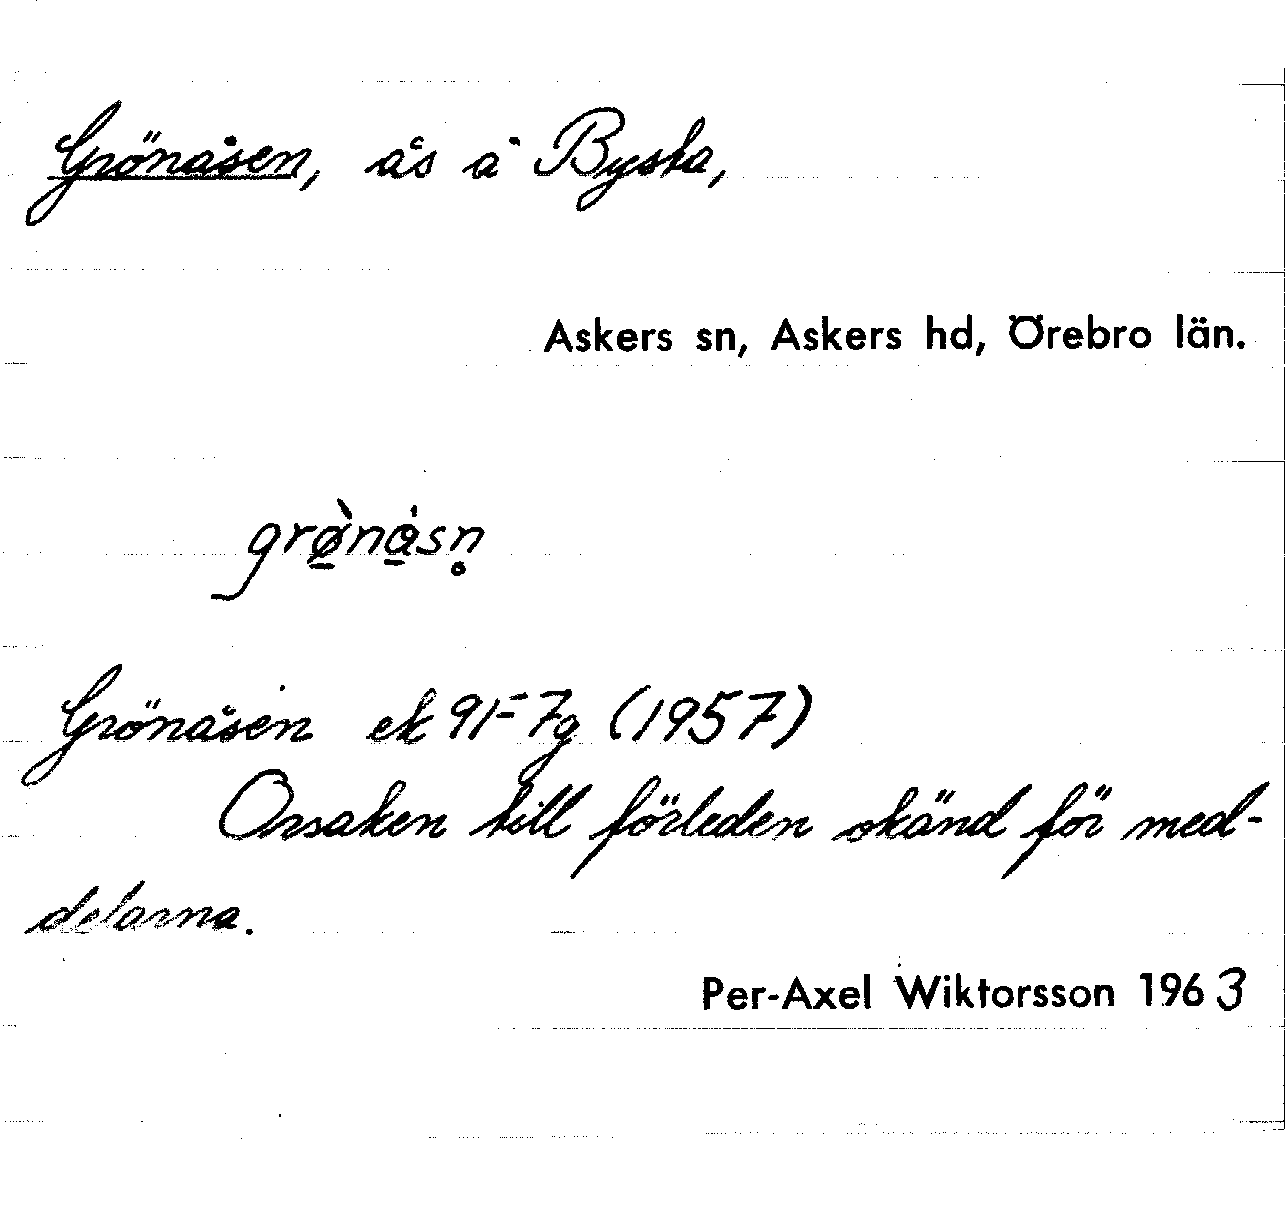 Grönåsen, ås å Bysta,
Askers sn, Askers hd, Örebro län.
grø̠̀nå̠sn̥
Grönåsen ek 91-7g (1957)
Orsaken till förleden okänd för med-
delarna.
Per-Axel Wiktorsson 1963